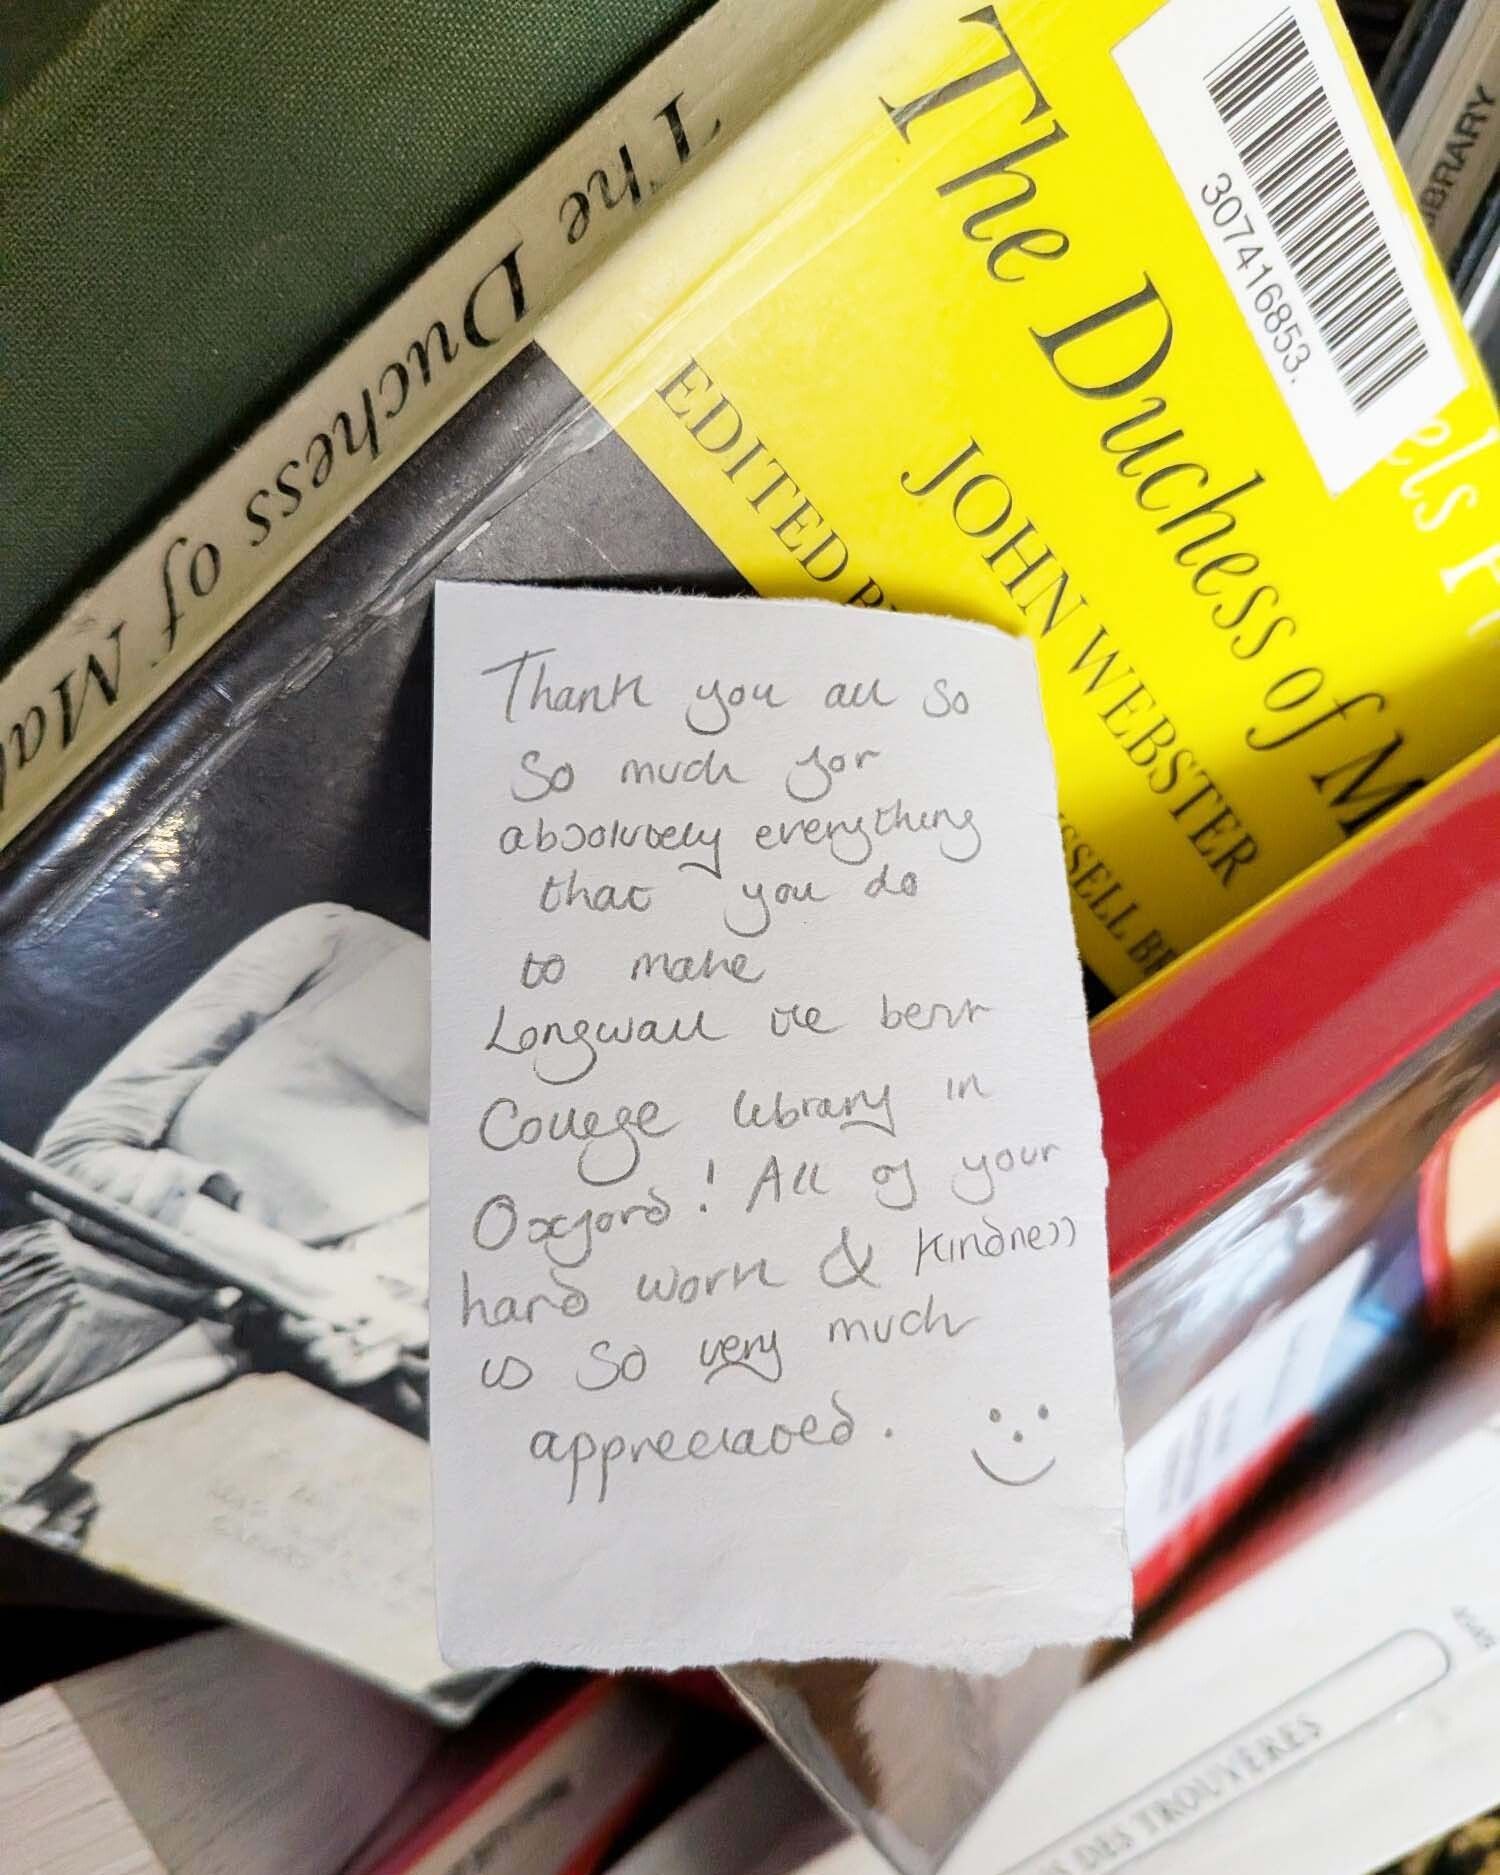 The Duchess of Mal
The Duchess of M
JOHN WEBSTER
EDITED B
SSELL BR
307416853.
els
IBRARY
Thank you all so
so much for
absolutely everything
that you do
to make
Longwall the best
College library in
Oxford! All of your
hard work & kindness
is so very much
appreciated.
DES TROUVÈRES